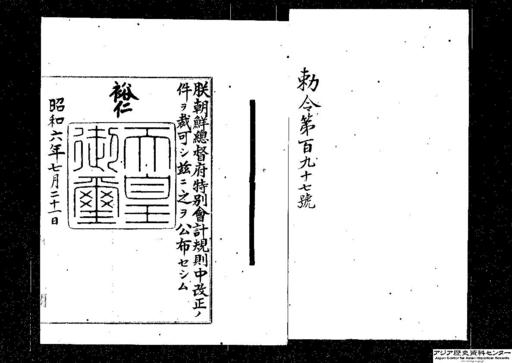 勅令第百九十七號
朕朝鮮總督府特別會計規則中改正ノ
件ヲ裁可シ玆ニ之ヲ公布セシム
裕仁
天皇
御璽
昭和六年七月二十一日
アジア歴史資料センター
Japan Center for Asian Historical Records